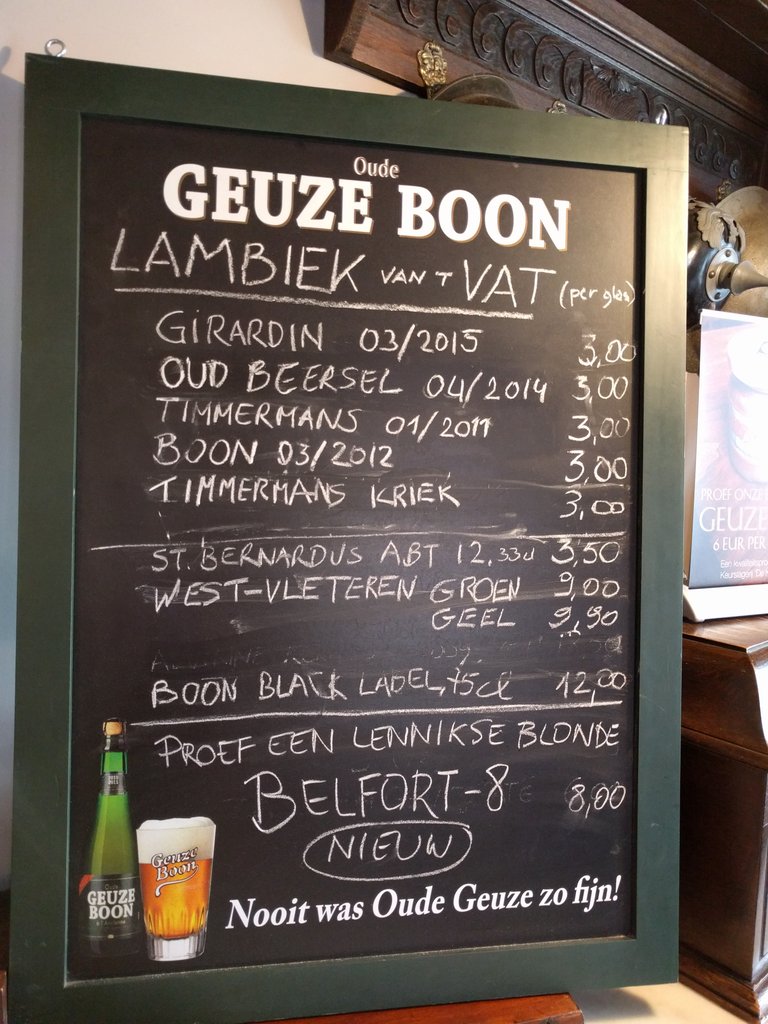 Oude
GEUZE BOON
LAMBIEK VAN T VAT (per glas)
GIRARDIN 03/2015 3,00
OUD BEERSEL 04/2014 3,00
TIMMERMANS 01/2011 3,00
BOON 03/2012 3,00
TIMMERMANS KRIEK 3,00
ST. BERNARDUS ABT 12, 33cl 3,50
WEST-VLETEREN GROEN 9,00
GEEL 9,90
BOON BLACK LABEL, 75cl 12,00
PROEF EEN LENNIKSE BLONDE
BELFORT-8 8,00
NIEUW
Nooit was Oude Geuze zo fijn!
Oude
GEUZE
BOON
Geuze
Boon
PROEF ONZE
GEUZE
6 EUR PER